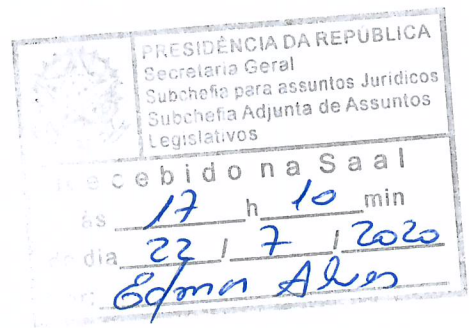 PRESIDÊNCIA DA REPÚBLICA
Secretaria Geral
Subchefia para assuntos Jurídicos
Subchefia Adjunta de Assuntos
Legislativos
ecebido na Saal
às 17 h 10 min
dia 22 / 7 / 2020
Edmar Alves